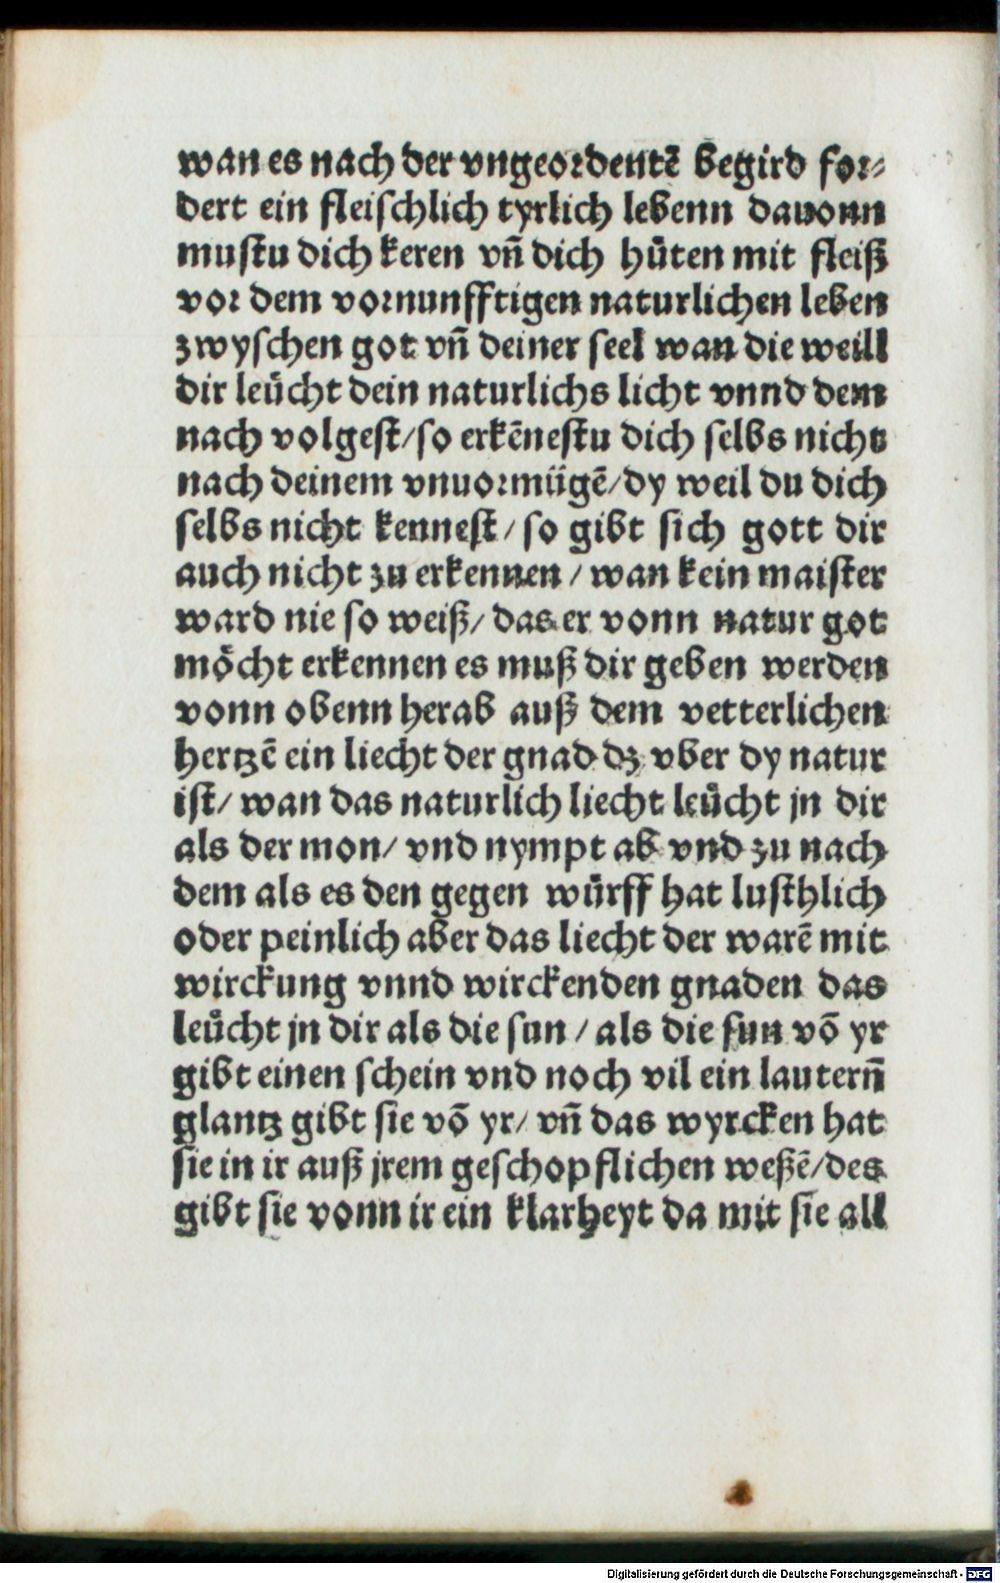 wan es nach der vngeordentē begird for⸗
dert ein fleischlich tyrlich lebenn dauonn
mustu dich keren vn̄ dich hůten mit fleiß
vor dem vornunfftigen naturlichen leben
zwyschen got vn̄ deiner seel wan die weill
dir leücht dein naturlichs licht vnnd dem
nach volgest/so erkēnestu dich selbs nicht
nach deinem vnuormügē/dy weil du dich
selbs nicht kennest/so gibt sich gott dir
auch nicht zu erkennen/wan kein maister
ward nie so weiß/das er vonn natur got
möcht erkennen es muß dir geben werden
vonn obenn herab auß dem vetterlichen
hertzē ein liecht der gnad dz vber dy natur
ist/wan das naturlich liecht leücht jn dir
als der mon/vnd nympt ab vnd zu nach
dem als es den gegen würff hat lusthlich
oder peinlich aber das liecht der warē mit
wirckung vnnd wirckenden gnaden das
leücht jn dir als die sun/als die sun vō yr
gibt einen schein vnd noch vil ein lautern̄
glantz gibt sie vō yr/vn̄ das wyrcken hat
sie in ir auß jrem geschopflichen weßē/des
gibt sie vonn ir ein klarheyt da mit sie all
Digitalisierung gefördert durch die Deutsche Forschungsgemeinschaft - DFG